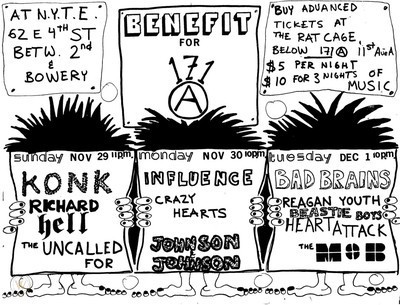 AT N.Y.T.E.
62 E 4TH ST
BETW. 2nd
& BOWERY
BENEFIT
FOR
171
A
"BUY ADVANCED
TICKETS AT
THE RAT CAGE,
BELOW 171 A, 11st Av.A
$5 PER NIGHT
$10 FOR 3 NIGHTS OF
MUSIC
sunday NOV 29 11pm
KONK
RICHARD
hell
THE UNCALLED
FOR
monday NOV 30 10pm
INFLUENCE
CRAZY
HEARTS
JOHNSON
JOHNSON
tuesday DEC 1 10pm
BAD BRAINS
REAGAN YOUTH
BEASTIE BOYS
HEART ATTACK
THE MOB